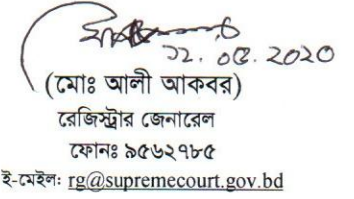 ২২. ০৫. ২০২০
(মোঃ আলী আকবর)
রেজিস্ট্রার জেনারেল
ফোনঃ ৯৫৬২৭৮৫
ই-মেইলঃ rg@supremecourt.gov.bd